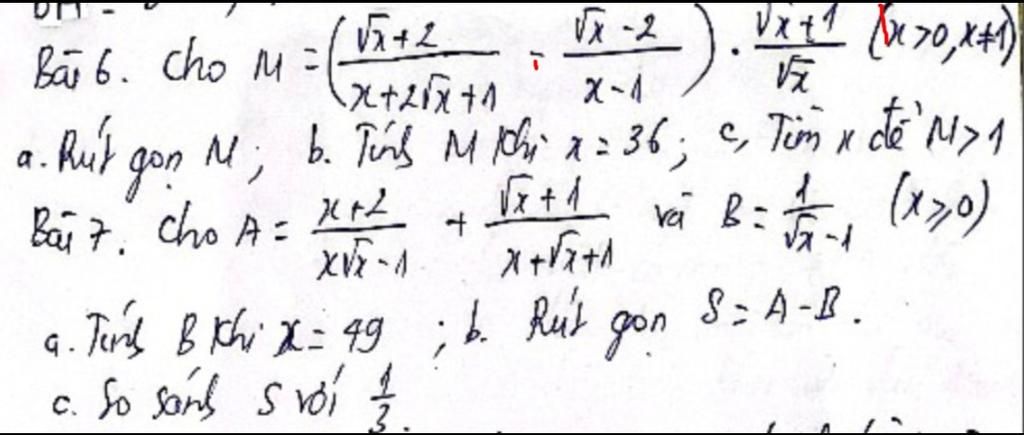 Bài 6. Cho M = ( (√x+2)/(x+2√x+1) - (√x-2)/(x-1) ) . (√x+1)/√x (x>0, x≠1)
a. Rút gọn M; b. Tính M khi x = 36; c, Tìm x để M>1
Bài 7. Cho A = (x+2)/(x√x-1) + (√x+1)/(x+√x+1) và B = 1/(√x-1) (x≥0)
a. Tính B khi x = 49 ; b. Rút gọn S = A-B.
c. So sánh S với 1/3.